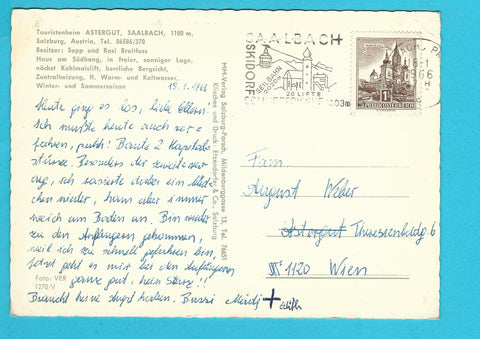 Touristenheim ASTERGUT, SAALBACH, 1100 m,
Salzburg, Austria, Tel. 06586/370
Besitzer: Sepp und Rosi Breitfuss
Haus am Südhang, in freier, sonniger Lage,
nächst Kohlmaislift, herrliche Bergsicht,
Zentralheizung, fl. Warm- und Kaltwasser,
Winter- und Sommersaison
15. 1. 1966
Heute ging es los, liebe Eltern!
Ich mußte heute auch vor-
fahren, puh! Baute 2 Kapitals
stürze. Besonders der zweite war
arg, ich rasierte dabei ein Mäd
chen nieder, kam aber immer
weich am Boden an. Bin wieder
zu den Anfängern gekommen,
weil ich zu schnell gefahren bin,
jetzt geht es mir bei den Anfängern
ganz gut, kein Sturz!!
Braucht keine Angst haben. Bussi
Foto: VER
1270/V
MM-Verlag Salzburg-Parsch, Mildenburggasse 12, Tel. 76603
Klischee und Druck: Etzendorfer & Co., Salzburg
SAALBACH
SKIDORF
SEILBAHN
2000m
20 LIFTE
REPUBLIK ÖSTERREICH
Frau
August Weber
Astergut Theresienbadg 6
1120 Wien